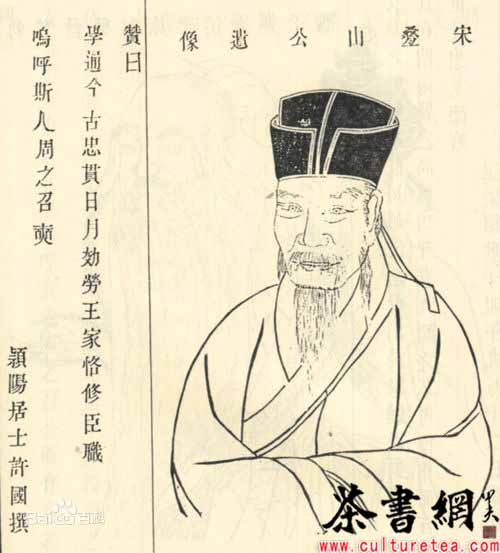 宋疊山公遺像
贊曰
學通今古忠貫日月効勞王家恪修臣職
嗚呼斯人周之召奭
穎陽居士許國撰
Baidu百科
茶書網
www.culturetea.com